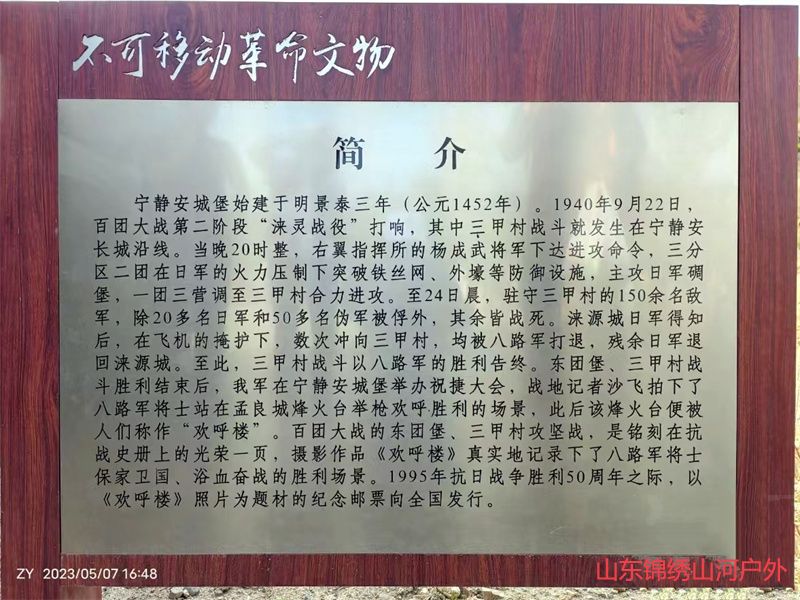 不可移动革命文物
简 介
宁静安城堡始建于明景泰三年（公元1452年）。1940年9月22日，
百团大战第二阶段“涞灵战役”打响，其中三甲村战斗就发生在宁静安
长城沿线。当晚20时整，右翼指挥所的杨成武将军下达进攻命令，三分
区二团在日军的火力压制下突破铁丝网、外壕等防御设施，主攻日军碉
堡，一团三营调至三甲村合力进攻。至24日晨，驻守三甲村的150余名敌
军，除20多名日军和50多名伪军被俘外，其余皆战死。涞源城日军得知
后，在飞机的掩护下，数次冲向三甲村，均被八路军打退，残余日军退
回涞源城。至此，三甲村战斗以八路军的胜利告终。东团堡、三甲村战
斗胜利结束后，我军在宁静安城堡举办祝捷大会，战地记者沙飞拍下了
八路军将士站在孟良城烽火台举枪欢呼胜利的场景，此后该烽火台便被
人们称作“欢呼楼”。百团大战的东团堡、三甲村攻坚战，是铭刻在抗
战史册上的光荣一页，摄影作品《欢呼楼》真实地记录下了八路军将士
保家卫国、浴血奋战的胜利场景。1995年抗日战争胜利50周年之际，以
《欢呼楼》照片为题材的纪念邮票向全国发行。
ZY 2023/05/07 16:48
山东锦绣山河户外